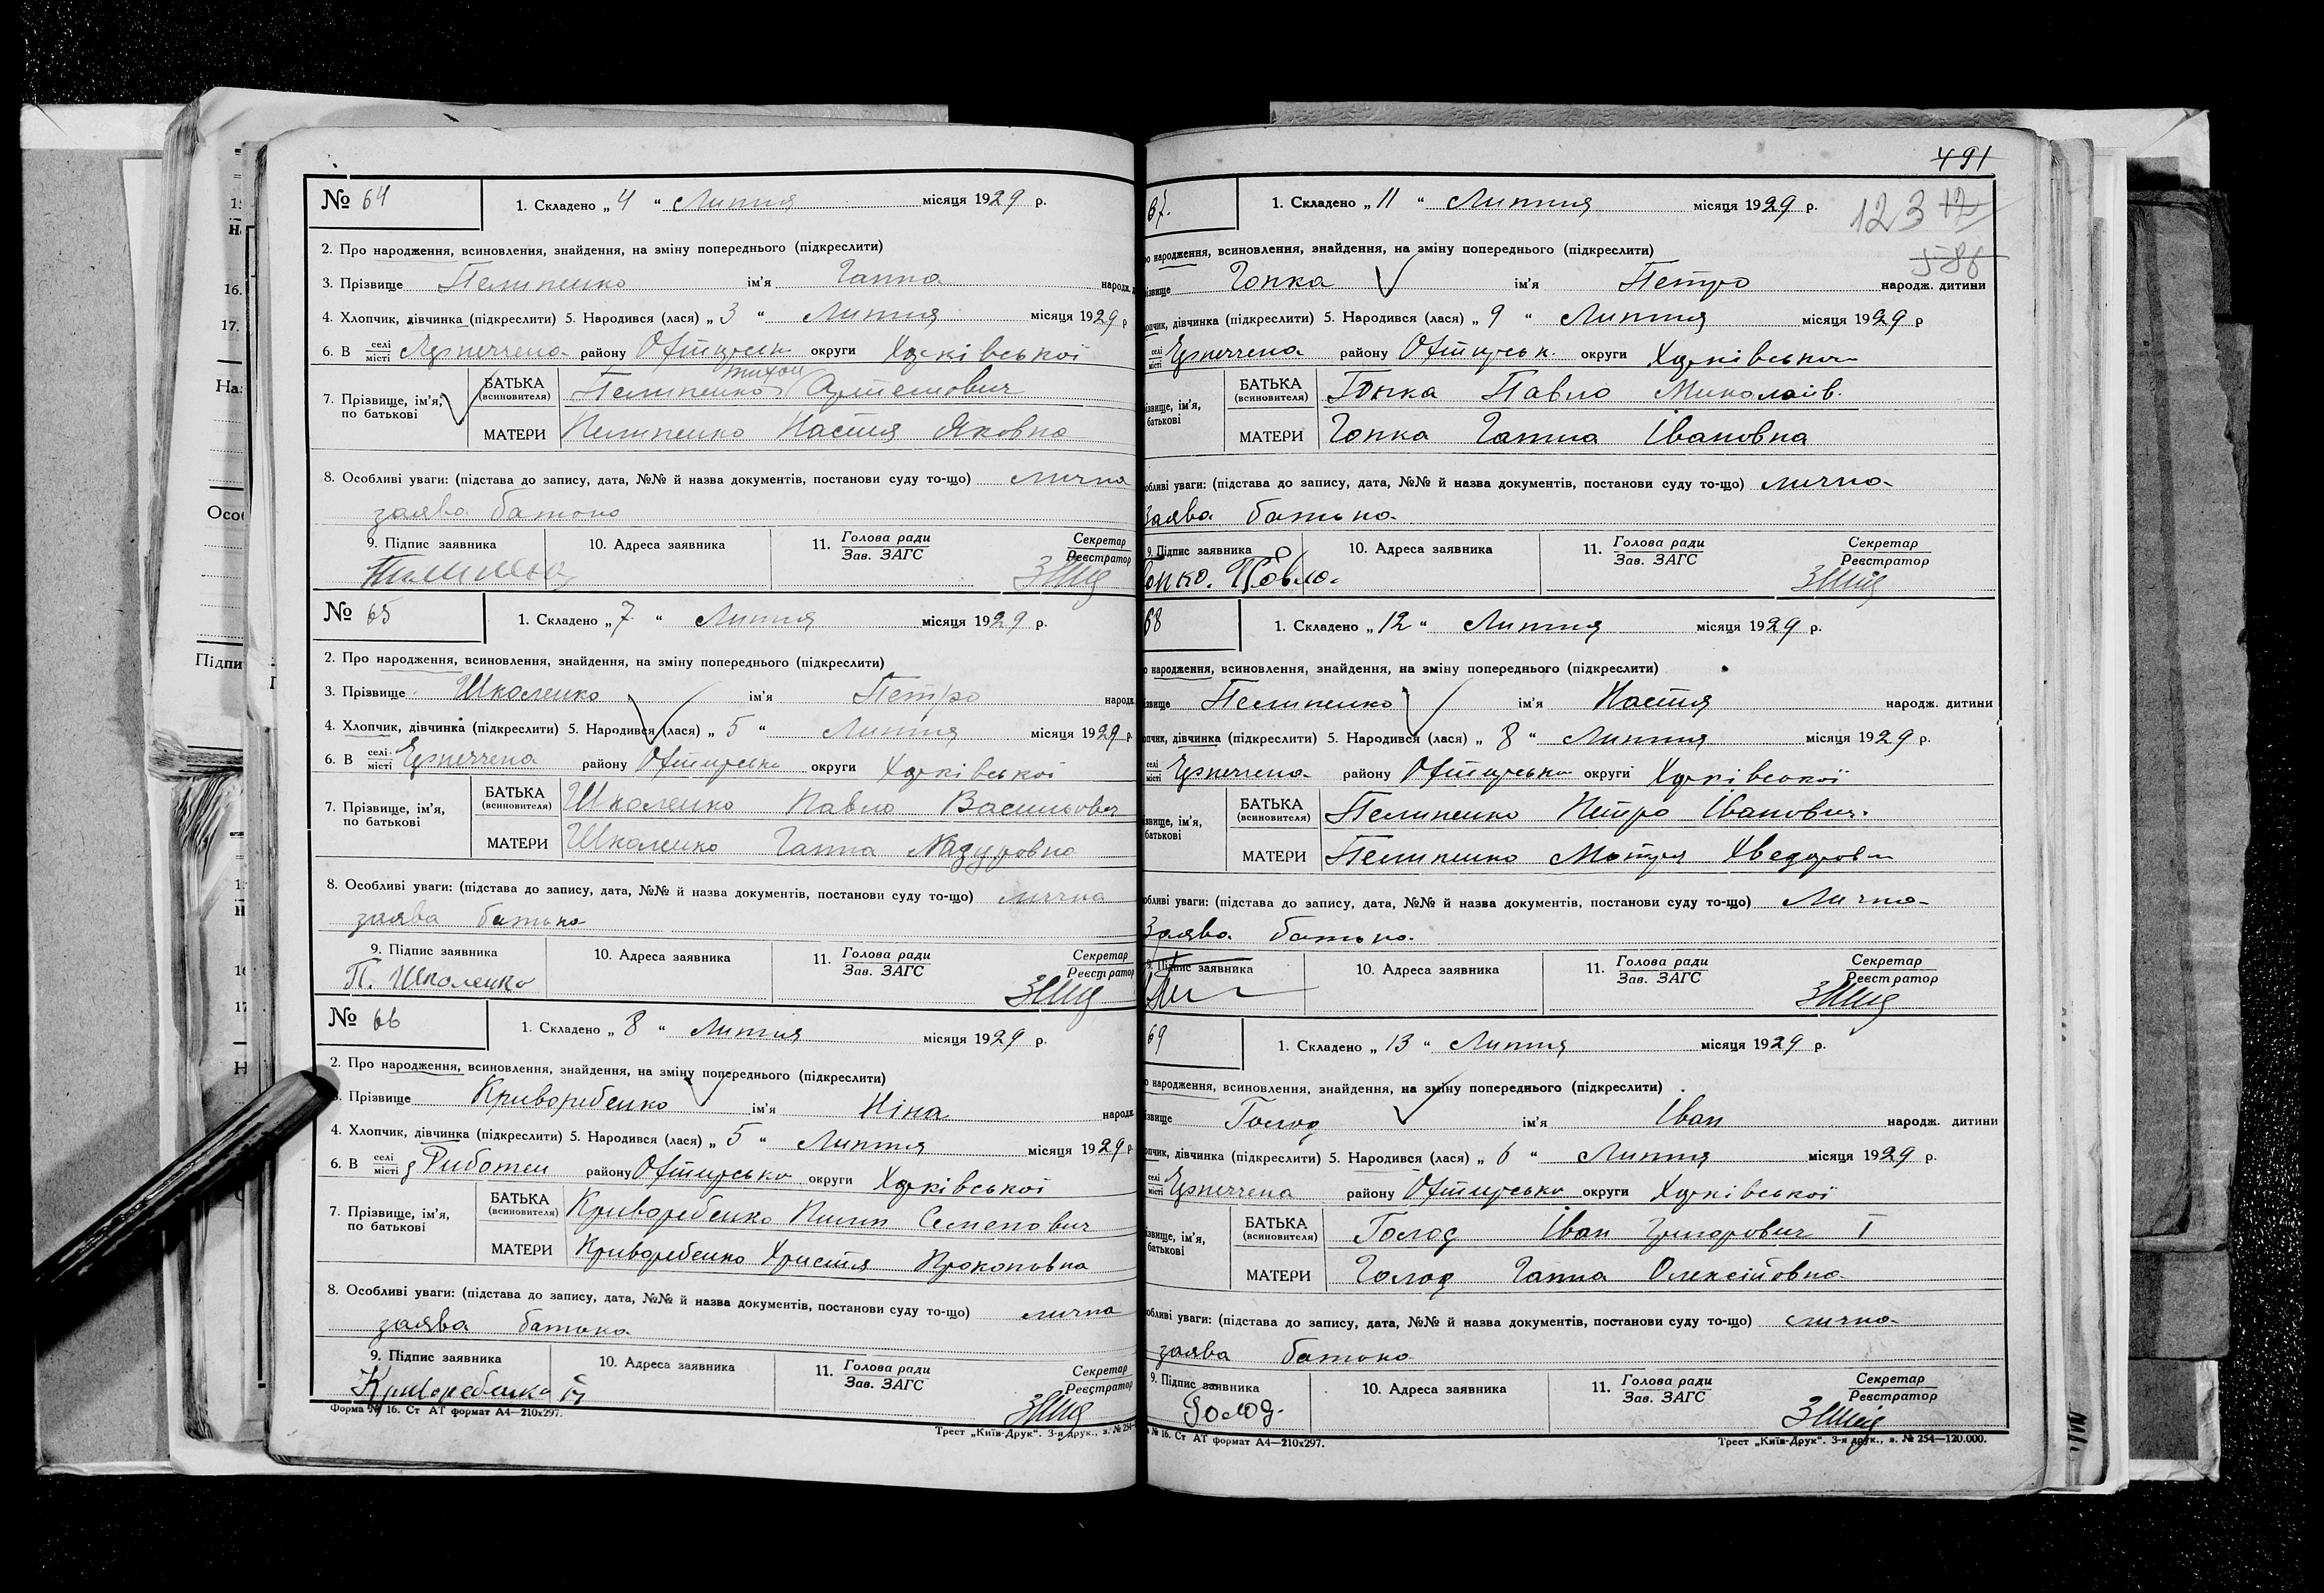 № 64
1. Складено „ 4 “ Липня місяця 1929 р.
2. Про народження, всиновлення, знайдення, на зміну попереднього (підкреслити)
3. Прізвище Пелипенко ім'я Ганна народж.
4. Хлопчик, дівчинка (підкреслити) 5. Народився (лася) „ 3 “ Липня місяця 1929 р
6. В селі місті району Охтирськ округи Харківської
7. Прізвище, ім'я, по батькові
БАТЬКА (всиновителя) Пелипенко Тихон Артемович
МАТЕРИ Пелипенко Настя Яковна
8. Особливі уваги: (підстава до запису, дата, №№ й назва документів, постанови суду то-що) лична
заява батька
9. Підпис заявника 10. Адреса заявника 11. Голова ради Зав. ЗАГС Секретар Реєстратор
№ 65
1. Складено „ 7 “ Липня місяця 1929 р.
2. Про народження, всиновлення, знайдення, на зміну попереднього (підкреслити)
3. Прізвище Школенко ім'я Петро народж
4. Хлопчик, дівчинка (підкреслити) 5. Народився (лася) „ 5 “ Липня місяця 1929 р
6. В селі місті району Охтирсько округи Харківської
7. Прізвище, ім'я, по батькові
БАТЬКА (всиновителя) Школенко Павло Васильович
МАТЕРИ Школенко Ганна
8. Особливі уваги: (підстава до запису, дата, №№ й назва документів, постанови суду то-що) лична
заява батька
9. Підпис заявника 10. Адреса заявника 11. Голова ради Зав. ЗАГС Секретар Реєстратор
П. Школенко
№ 66
1. Складено „ 8 “ Липня місяця 1929 р.
2. Про народження, всиновлення, знайдення, на зміну попереднього (підкреслити)
3. Прізвище Криворебенко ім'я Ніна народж
4. Хлопчик, дівчинка (підкреслити) 5. Народився (лася) „ 5 “ Липня місяця 1929 р
6. В селі місті району Охтирсько округи Харківської
7. Прізвище, ім'я, по батькові
БАТЬКА (всиновителя) Криворебенко Пилип Семенович
МАТЕРИ Криворебенко Христя Прокоповна
8. Особливі уваги: (підстава до запису, дата, №№ й назва документів, постанови суду то-що) лична
заява батька
9. Підпис заявника 10. Адреса заявника 11. Голова ради Зав. ЗАГС Секретар Реєстратор
Криворебенко
Форма № 16. Ст АТ формат А4—210х297.
Трест „Київ-Друк“. 3-я друк., з. № 254
491
123
67.
1. Складено „ 11 “ Липня місяця 1929 р.
народження, всиновлення, знайдення, на зміну попереднього (підкреслити)
Гопка ім'я Петро народж. дитини
дівчинка (підкреслити) 5. Народився (лася) „ 9 “ Липня місяця 1929 р
селі місті району Охтирськ. округи Харківської
БАТЬКА (всиновителя) Гопка Павло Миколаїв.
МАТЕРИ Гопка Ганна Івановна
уваги: (підстава до запису, дата, №№ й назва документів, постанови суду то-що) лична
Заява батька
9. Підпис заявника 10. Адреса заявника 11. Голова ради Зав. ЗАГС Секретар Реєстратор
Павло.
68
1. Складено „ 12 “ Липня місяця 1929 р.
народження, всиновлення, знайдення, на зміну попереднього (підкреслити)
Пелипенко ім'я Настя народж. дитини
дівчинка (підкреслити) 5. Народився (лася) „ 8 “ Липня місяця 1929 р.
селі місті району Охтирсько округи Харківської
БАТЬКА (всиновителя) Пелипенко Петро Іванович.
МАТЕРИ Пелипенко Мотря Хведоровн
уваги: (підстава до запису, дата, №№ й назва документів, постанови суду то-що) Лична
Заява батька
9. Підпис заявника 10. Адреса заявника 11. Голова ради Зав. ЗАГС Секретар Реєстратор
69
1. Складено „ 13 “ Липня місяця 1929 р.
народження, всиновлення, знайдення, на зміну попереднього (підкреслити)
Голод ім'я Іван народж. дитини
дівчинка (підкреслити) 5. Народився (лася) „ 6 “ Липня місяця 1929 р.
селі місті району Охтирсько округи Харківської
БАТЬКА (всиновителя) Голод Іван Григорович І
МАТЕРИ Голод Ганна Олексійовна
уваги: (підстава до запису, дата, №№ й назва документів, постанови суду то-що) лична
заява батька
9. Підпис заявника 10. Адреса заявника 11. Голова ради Зав. ЗАГС Секретар Реєстратор
Голод.
№ 16. Ст АТ формат А4—210х297.
Трест „Київ-Друк“. 3-я друк., з. № 254—120.000.